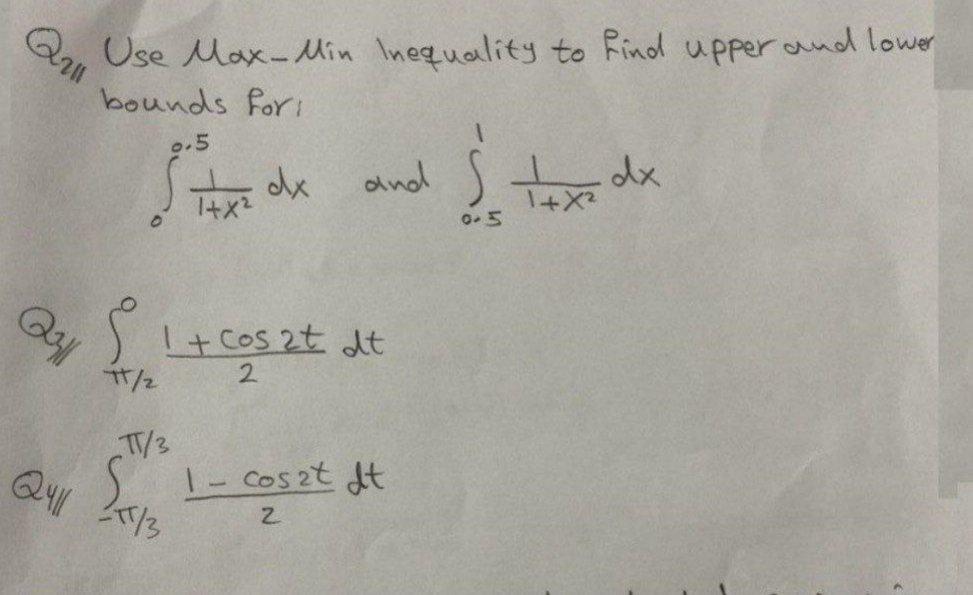 Q2// Use Max-Min Inequality to find upper and lower
bounds for:
∫₀^0.5 1/(1+x²) dx and ∫_0.5^1 1/(1+x²) dx
Q3// ∫_π/2^0 (1+cos 2t)/2 dt
Q4// ∫_-π/3^π/3 (1-cos 2t)/2 dt